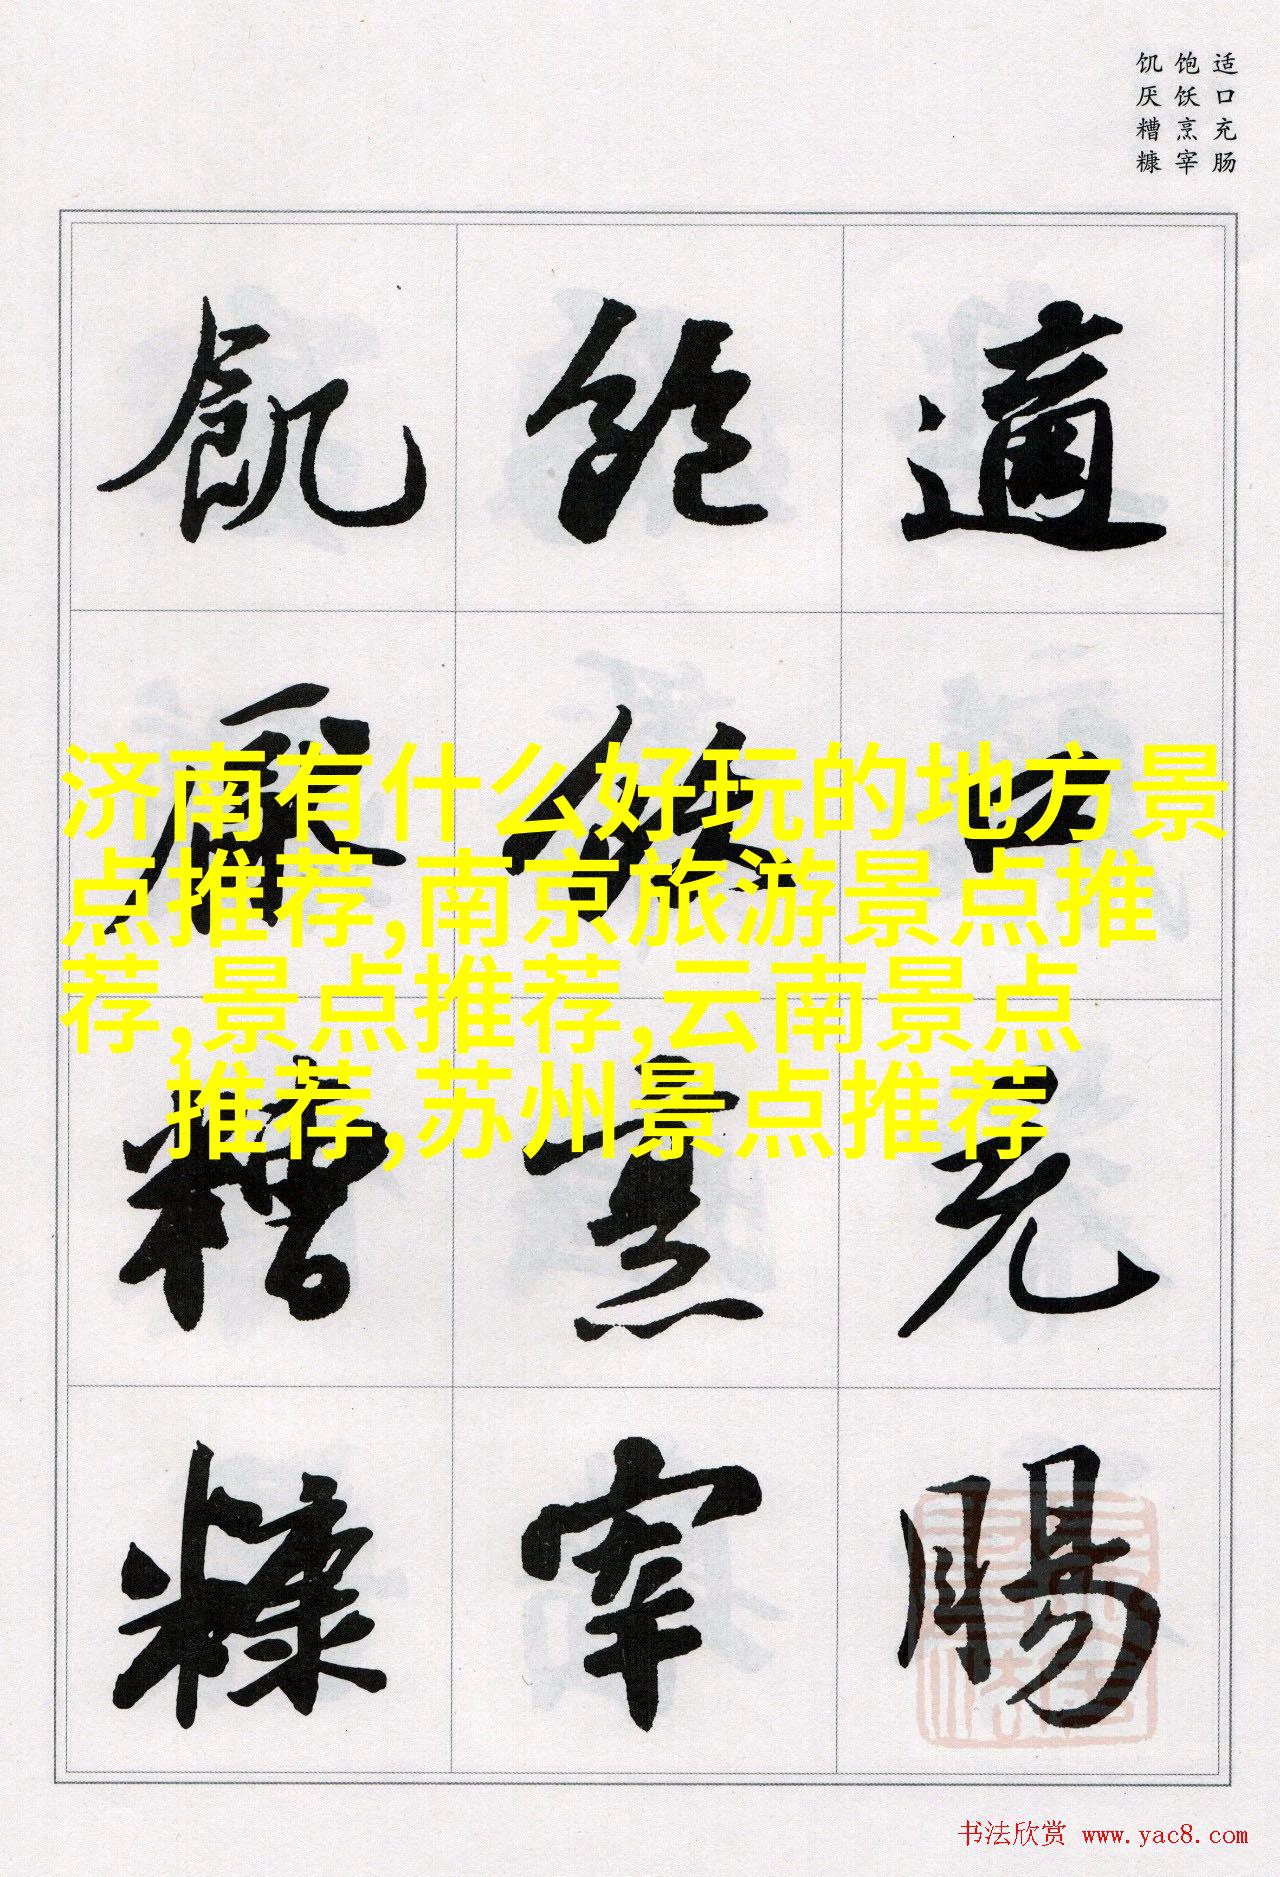 适口充肠
饱饫烹宰
饥厌糟糠
適口充腸
飽飫烹宰
飢厭糟糠
济南有什么好玩的地方景
点推荐,南京旅游景点推
荐,景点推荐,云南景点
推荐,苏州景点推荐
书法欣赏 www.yac8.com